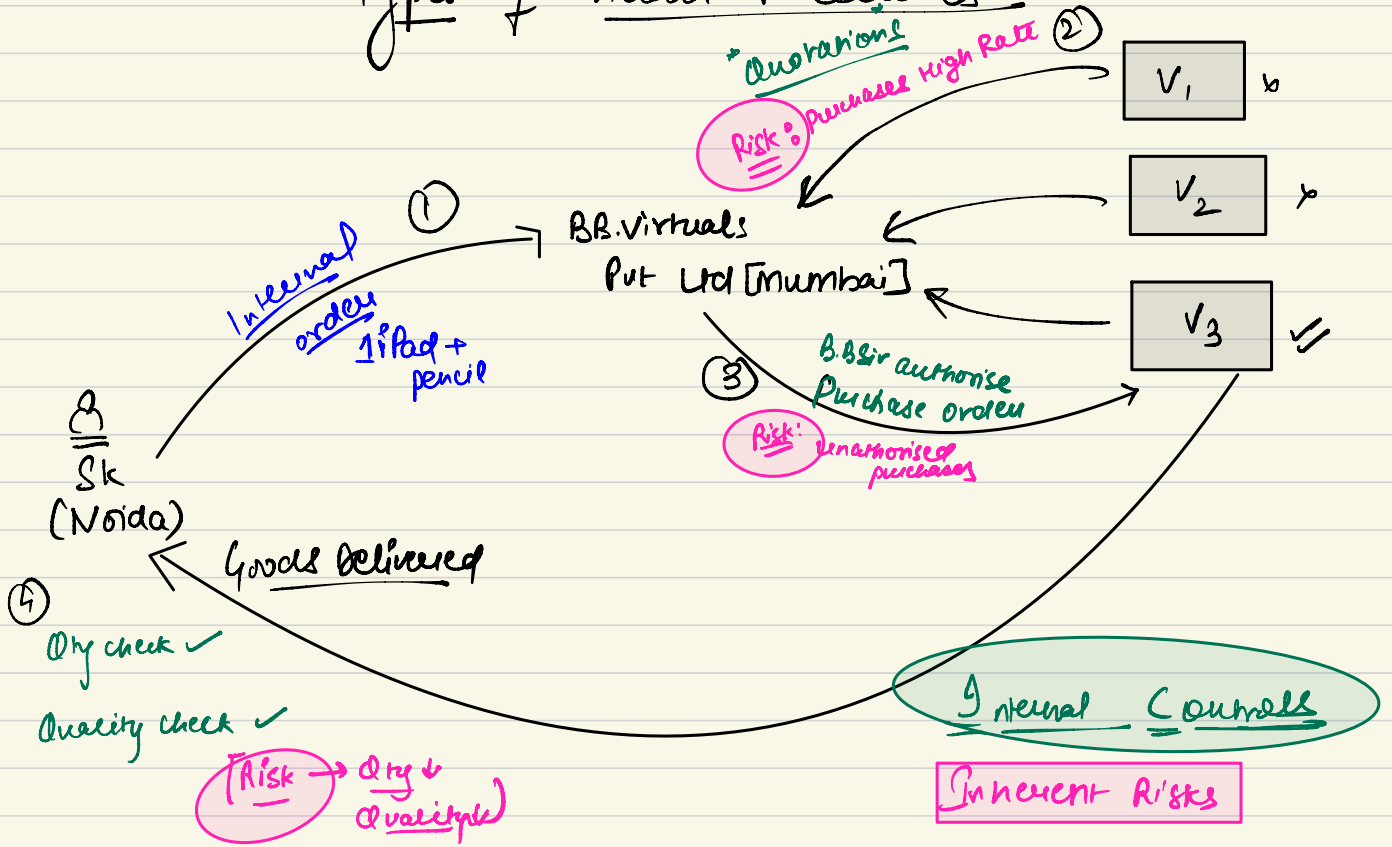 Types of
* Quotations
Risk: Purchases High Rate
②
V1 x
V2 x
V3 ✓
①
Internal
order
1 iPad +
pencil
BB.Virtuals
Pvt Ltd [Mumbai]
③
B.B Sir authorise
Purchase order
Risk: Unauthorised
purchases
Sk
(Noida)
Goods Delivered
④
Qty check ✓
Quality check ✓
[Risk → Qty ↓
Quality ↓)
Internal Controls
Inherent Risks